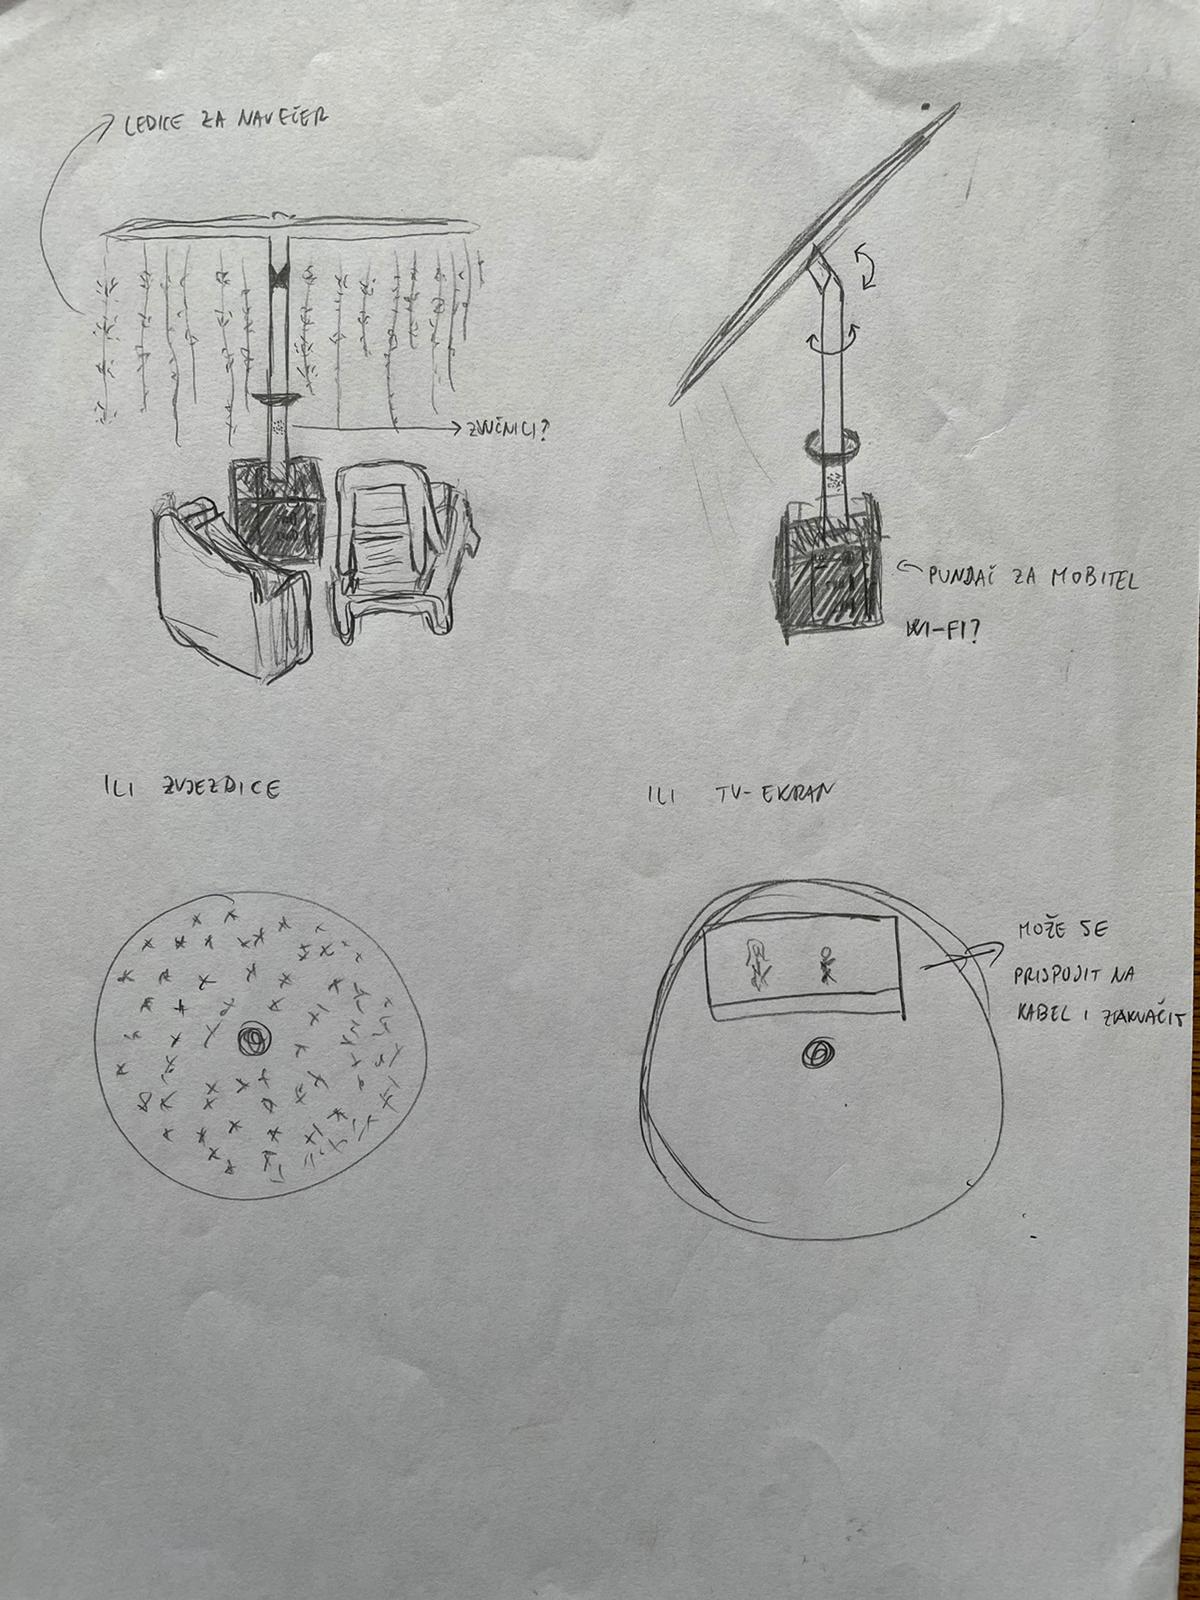 LEDICE ZA NAVEČER
ZVUČNICI?
PUNJAČ ZA MOBITEL
WI-FI?
ILI ZVJEZDICE
ILI TV-EKRAN
MOŽE SE
PRISPOJIT NA
KABEL I ZAKVAČIT